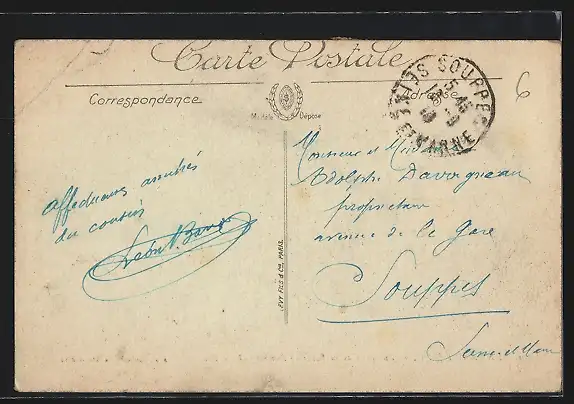 Carte Postale
Correspondance
Adresse
Modèle Déposé
SOUPPES
S.-&-MARNE
6
Affectueuses amitiés
du cousin
Léon
LEVY FILS & CIE, PARIS.
Monsieur et Madame
Adolphe Davergneau
propriétaire
avenue de la Gare
Souppes
Seine et Marne